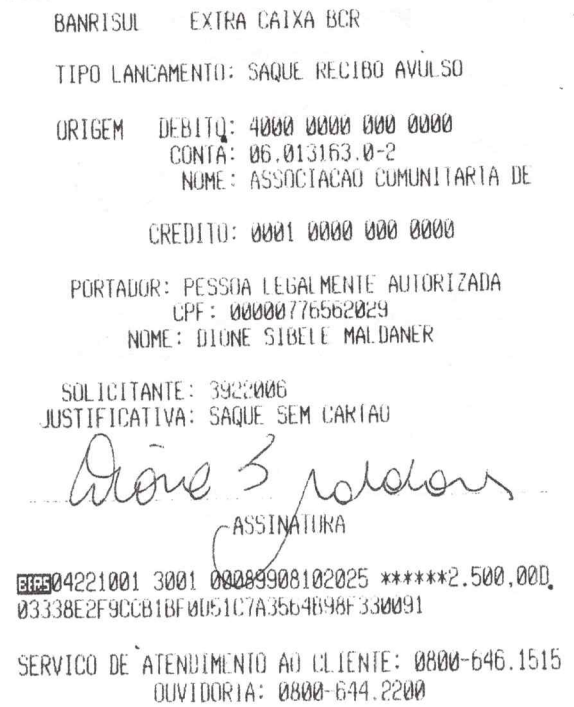 BANRISUL EXTRA CAIXA BCR
TIPO LANCAMENTO: SAQUE RECIBO AVULSO
ORIGEM DEBITO: 4000 0000 000 0000
CONTA: 06.013163.0-2
NOME: ASSOCIACAO COMUNITARIA DE
CREDITO: 0001 0000 000 0000
PORTADOR: PESSOA LEGALMENTE AUTORIZADA
CPF: 00000776562029
NOME: DIONE SIBELE MALDANER
SOLICITANTE: 3922006
JUSTIFICATIVA: SAQUE SEM CARTAO
Dione S
ASSINATURA
04221001 3001 00089908102025 ******2.500,00D
03338E2F9CCB1BF0D51C7A3564B98F330091
SERVICO DE ATENDIMENTO AO CLIENTE: 0800-646.1515
OUVIDORIA: 0800-644.2200